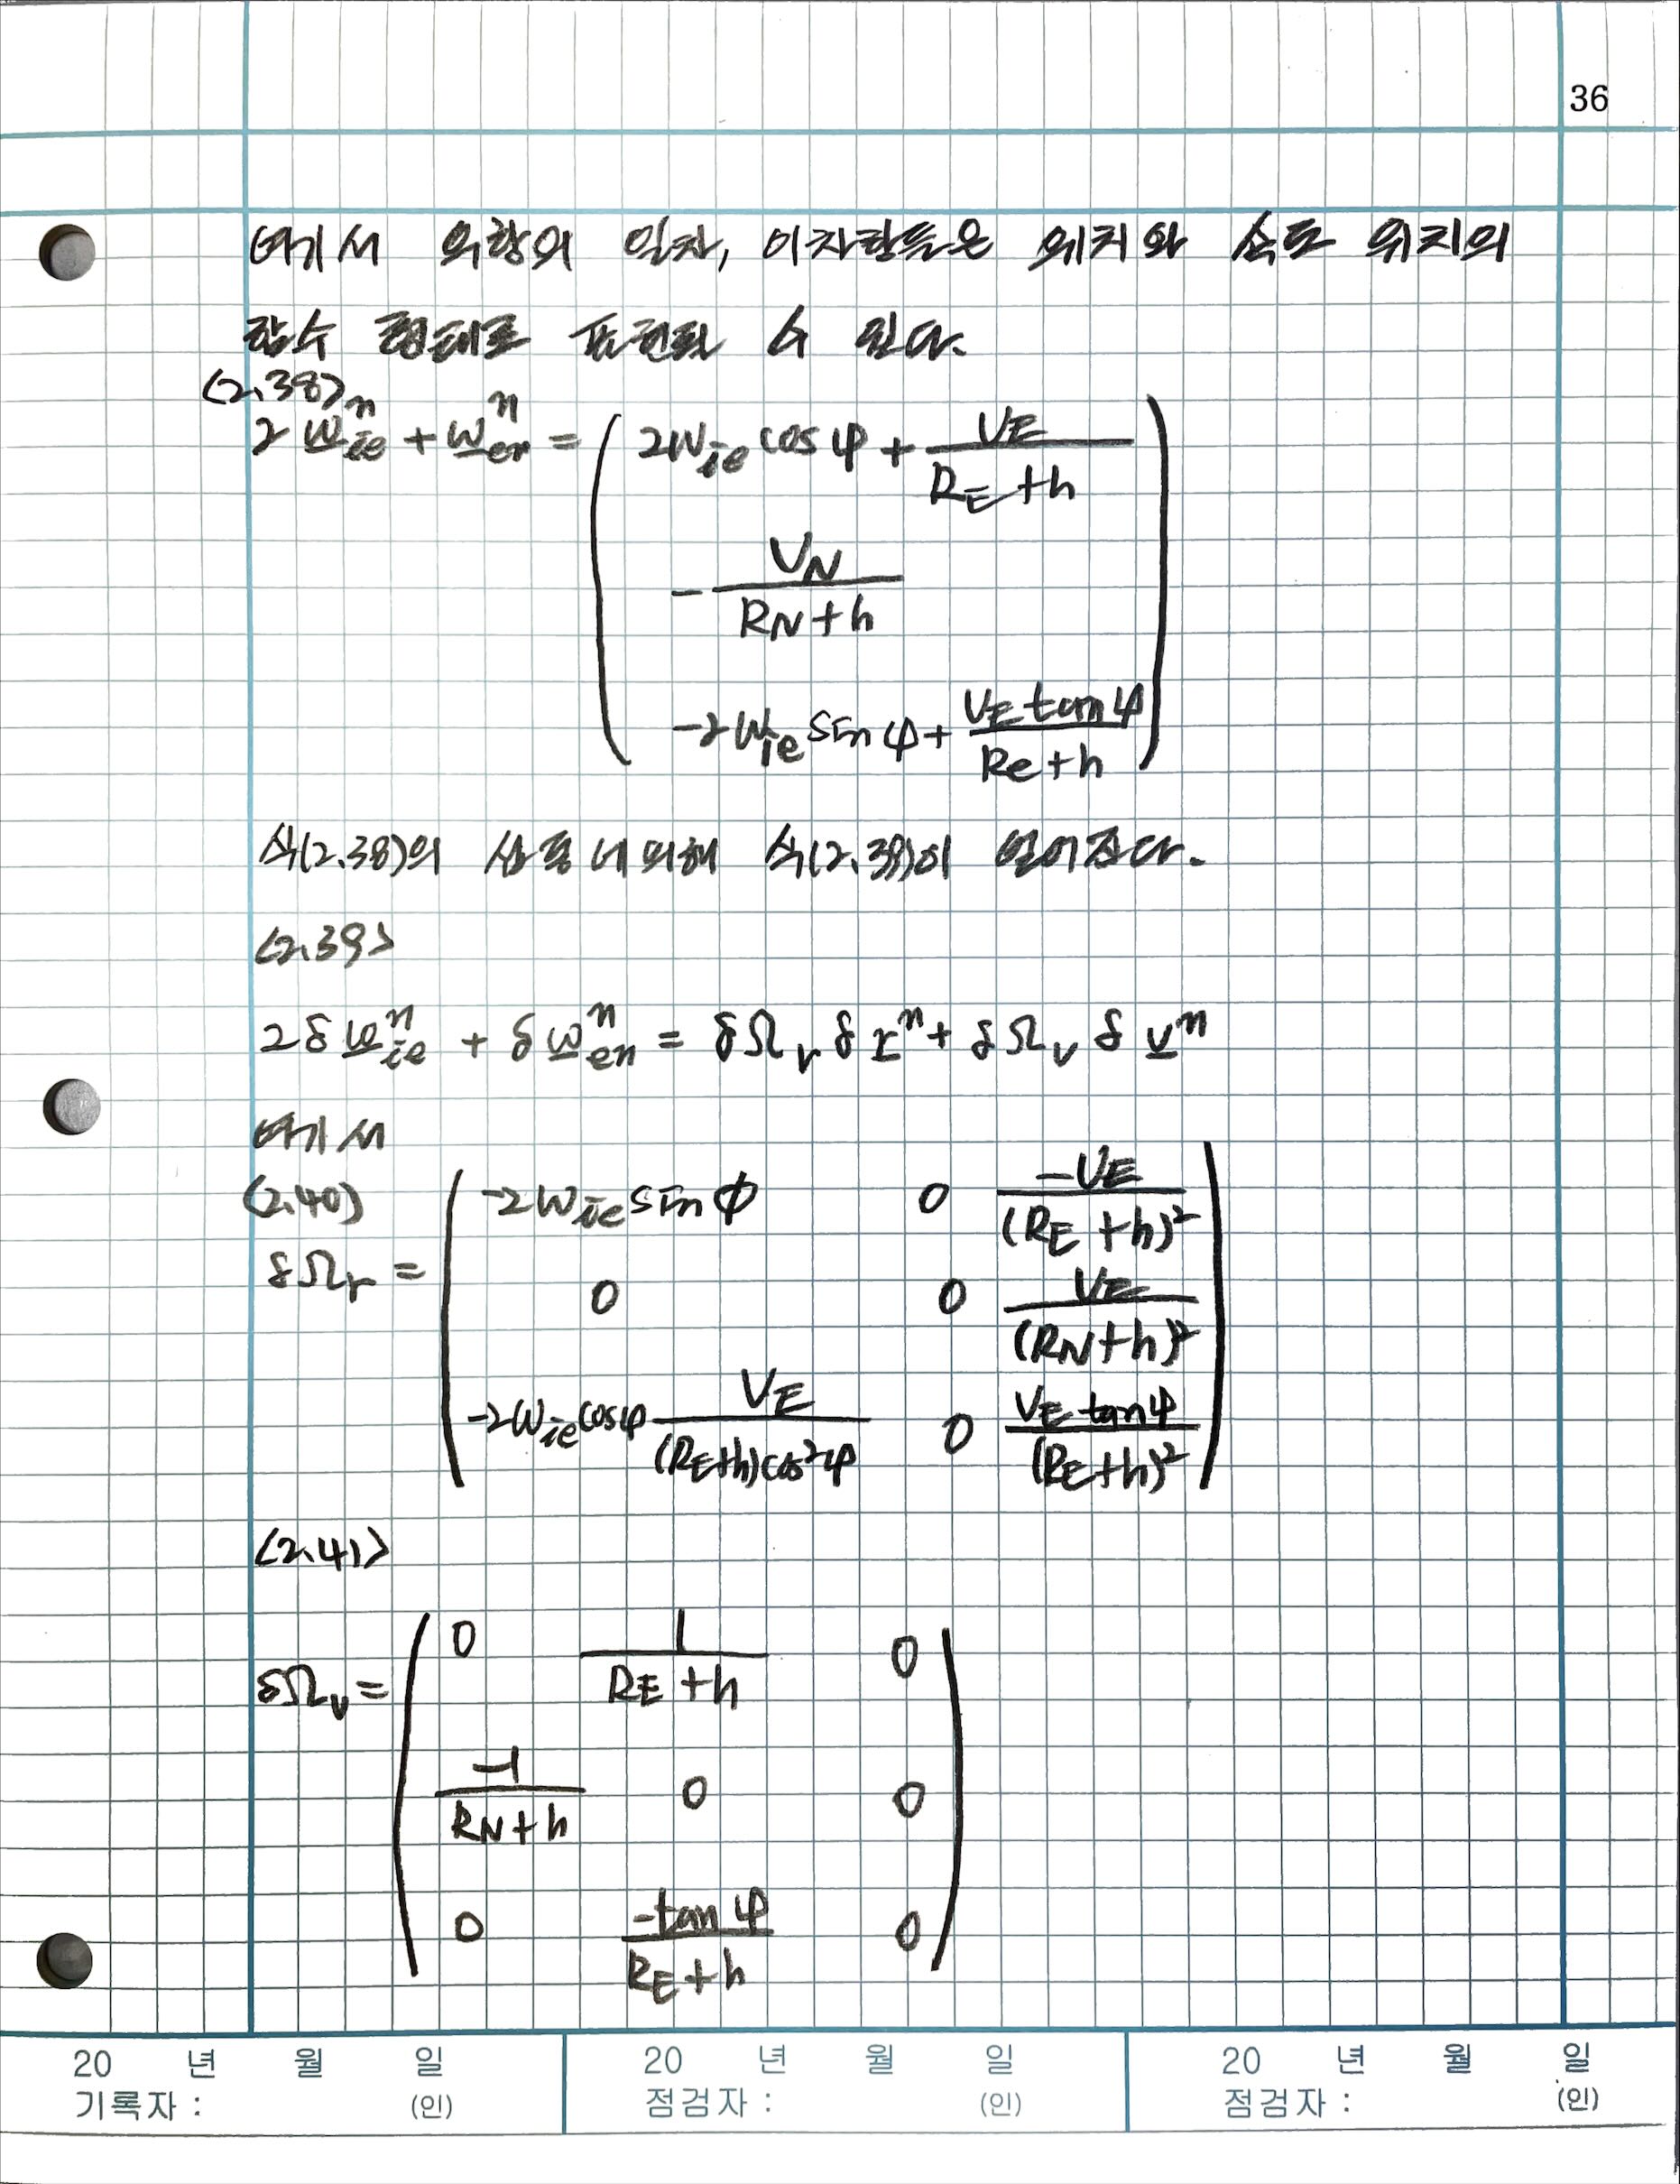 36
여기서 외항의 일차, 이차항들은 위치와 속도 위치의
함수 형태로 표현될 수 있다.
(2.38)
2 ω_ie^n + ω_en^n = ( 2ω_ie cos φ + V_E / (R_E + h)
- V_N / (R_N + h)
-2 ω_ie sin φ + V_E tan φ / (Re + h) )
식(2.38)의 에 의해 식(2.39)이 얻어진다.
<2.39>
2δ ω_ie^n + δ ω_en^n = δΩ_r δ r^n + δΩ_v δ v^n
여기서
(2.40)
δΩ_r = ( -2ω_ie sin ϕ 0 -V_E / (R_E + h)²
0 0 V_E / (R_N + h)²
-2ω_ie cos φ - V_E / ((R_E + h) cos² φ) 0 V_E tan φ / (R_E + h)² )
<2.41>
δΩ_v = ( 0 1 / (R_E + h) 0
-1 / (R_N + h) 0 0
0 -tan φ / (R_E + h) 0 )
20 년 월 일 20 년 월 일 20 년 월 일
기록자 : (인) 점검자 : (인) 점검자 : (인)